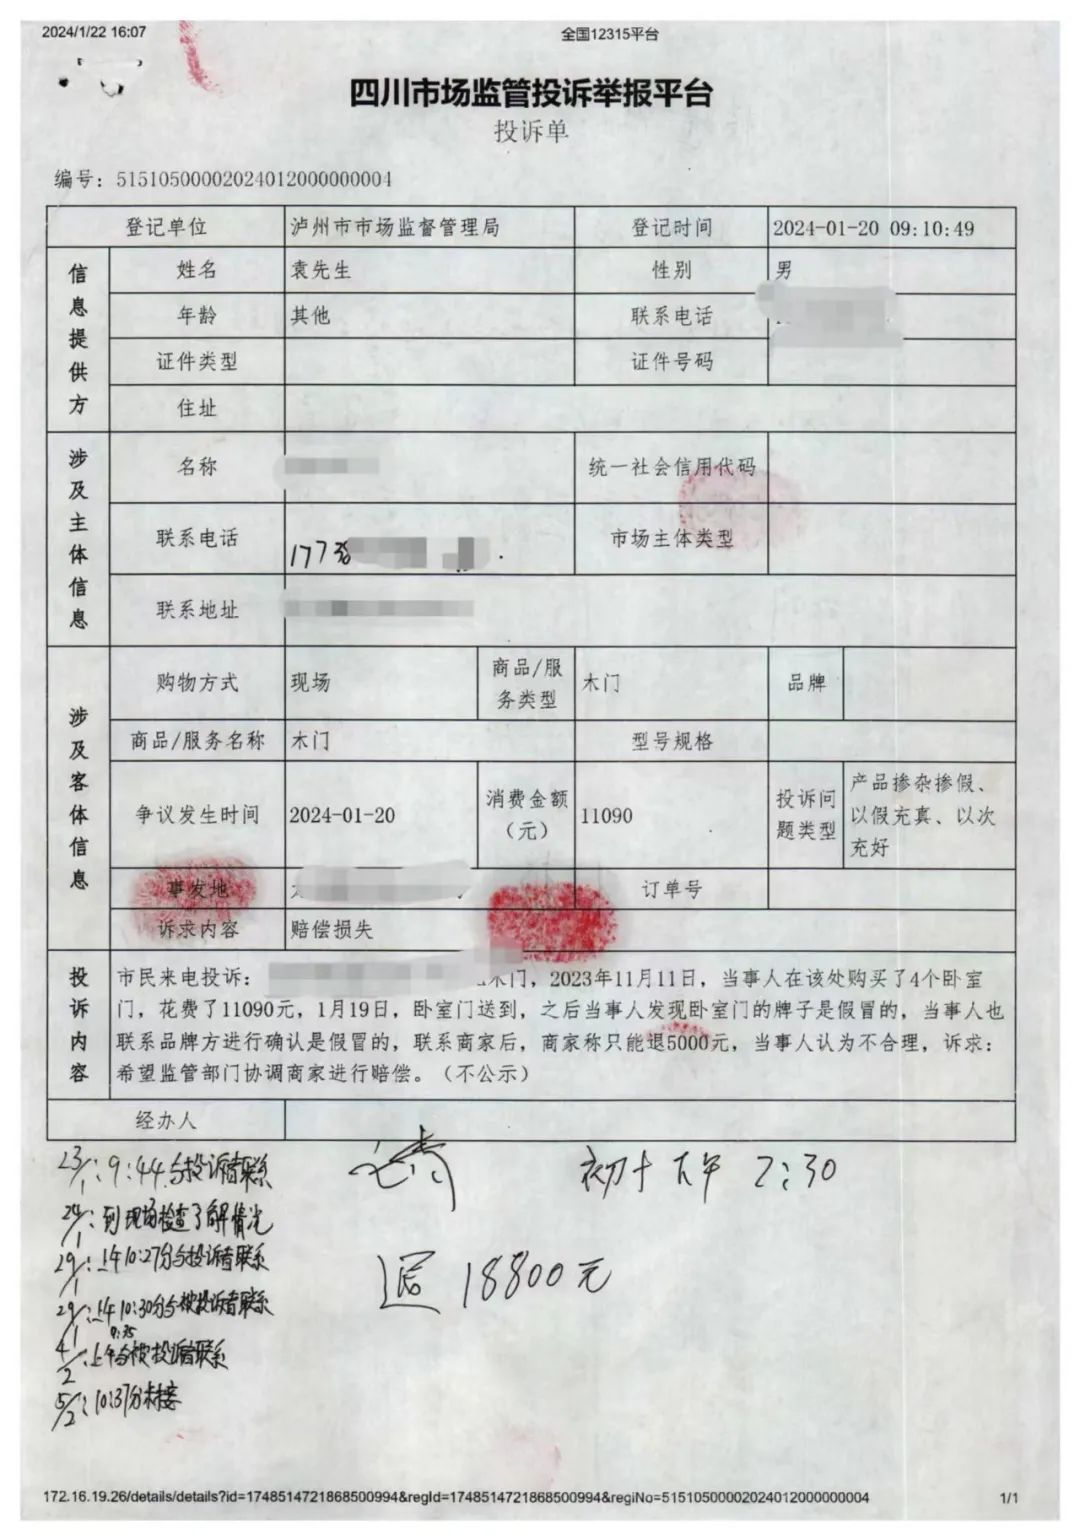 2024/1/22 16:07 全国12315平台
四川市场监管投诉举报平台
投诉单
编号：51510500002024012000000004
登记单位 泸州市市场监督管理局 登记时间 2024-01-20 09:10:49
信息提供方
姓名 袁先生 性别 男
年龄 其他 联系电话
证件类型 证件号码
住址
涉及主体信息
名称 统一社会信用代码
联系电话 177 市场主体类型
联系地址
涉及客体信息
购物方式 现场 商品/服务类型 木门 品牌
商品/服务名称 木门 型号规格
争议发生时间 2024-01-20 消费金额（元） 11090 投诉问题类型 产品掺杂掺假、以假充真、以次充好
事发地 订单号
诉求内容 赔偿损失
投诉内容
市民来电投诉： 木门，2023年11月11日，当事人在该处购买了4个卧室
门，花费了11090元，1月19日，卧室门送到，之后当事人发现卧室门的牌子是假冒的，当事人也
联系品牌方进行确认是假冒的，联系商家后，商家称只能退5000元，当事人认为不合理，诉求：
希望监管部门协调商家进行赔偿。（不公示）
经办人
23/1：9:44与投诉者联系
24/1：到现场检查了解情况
29/1：上午10:27分与投诉者联系
29/1：上午10:30分与被投诉者联系
9:35
4/2：上午与被投诉者联系
5/2：10:37分未接
初十下午 2:30
退 18800元
172.16.19.26/details/details?id=1748514721868500994&regId=1748514721868500994&regiNo=51510500002024012000000004 1/1